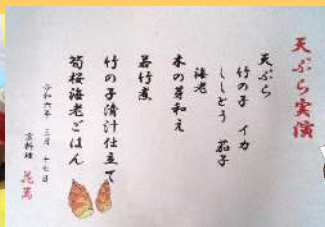 天ぷら実演
天ぷら
竹の子 イカ
ししとう 茄子
海老
木の芽和え
若竹煮
竹の子清汁仕立て
筍桜海老ごはん
令和六年 三月 十七日
京料理 花萬